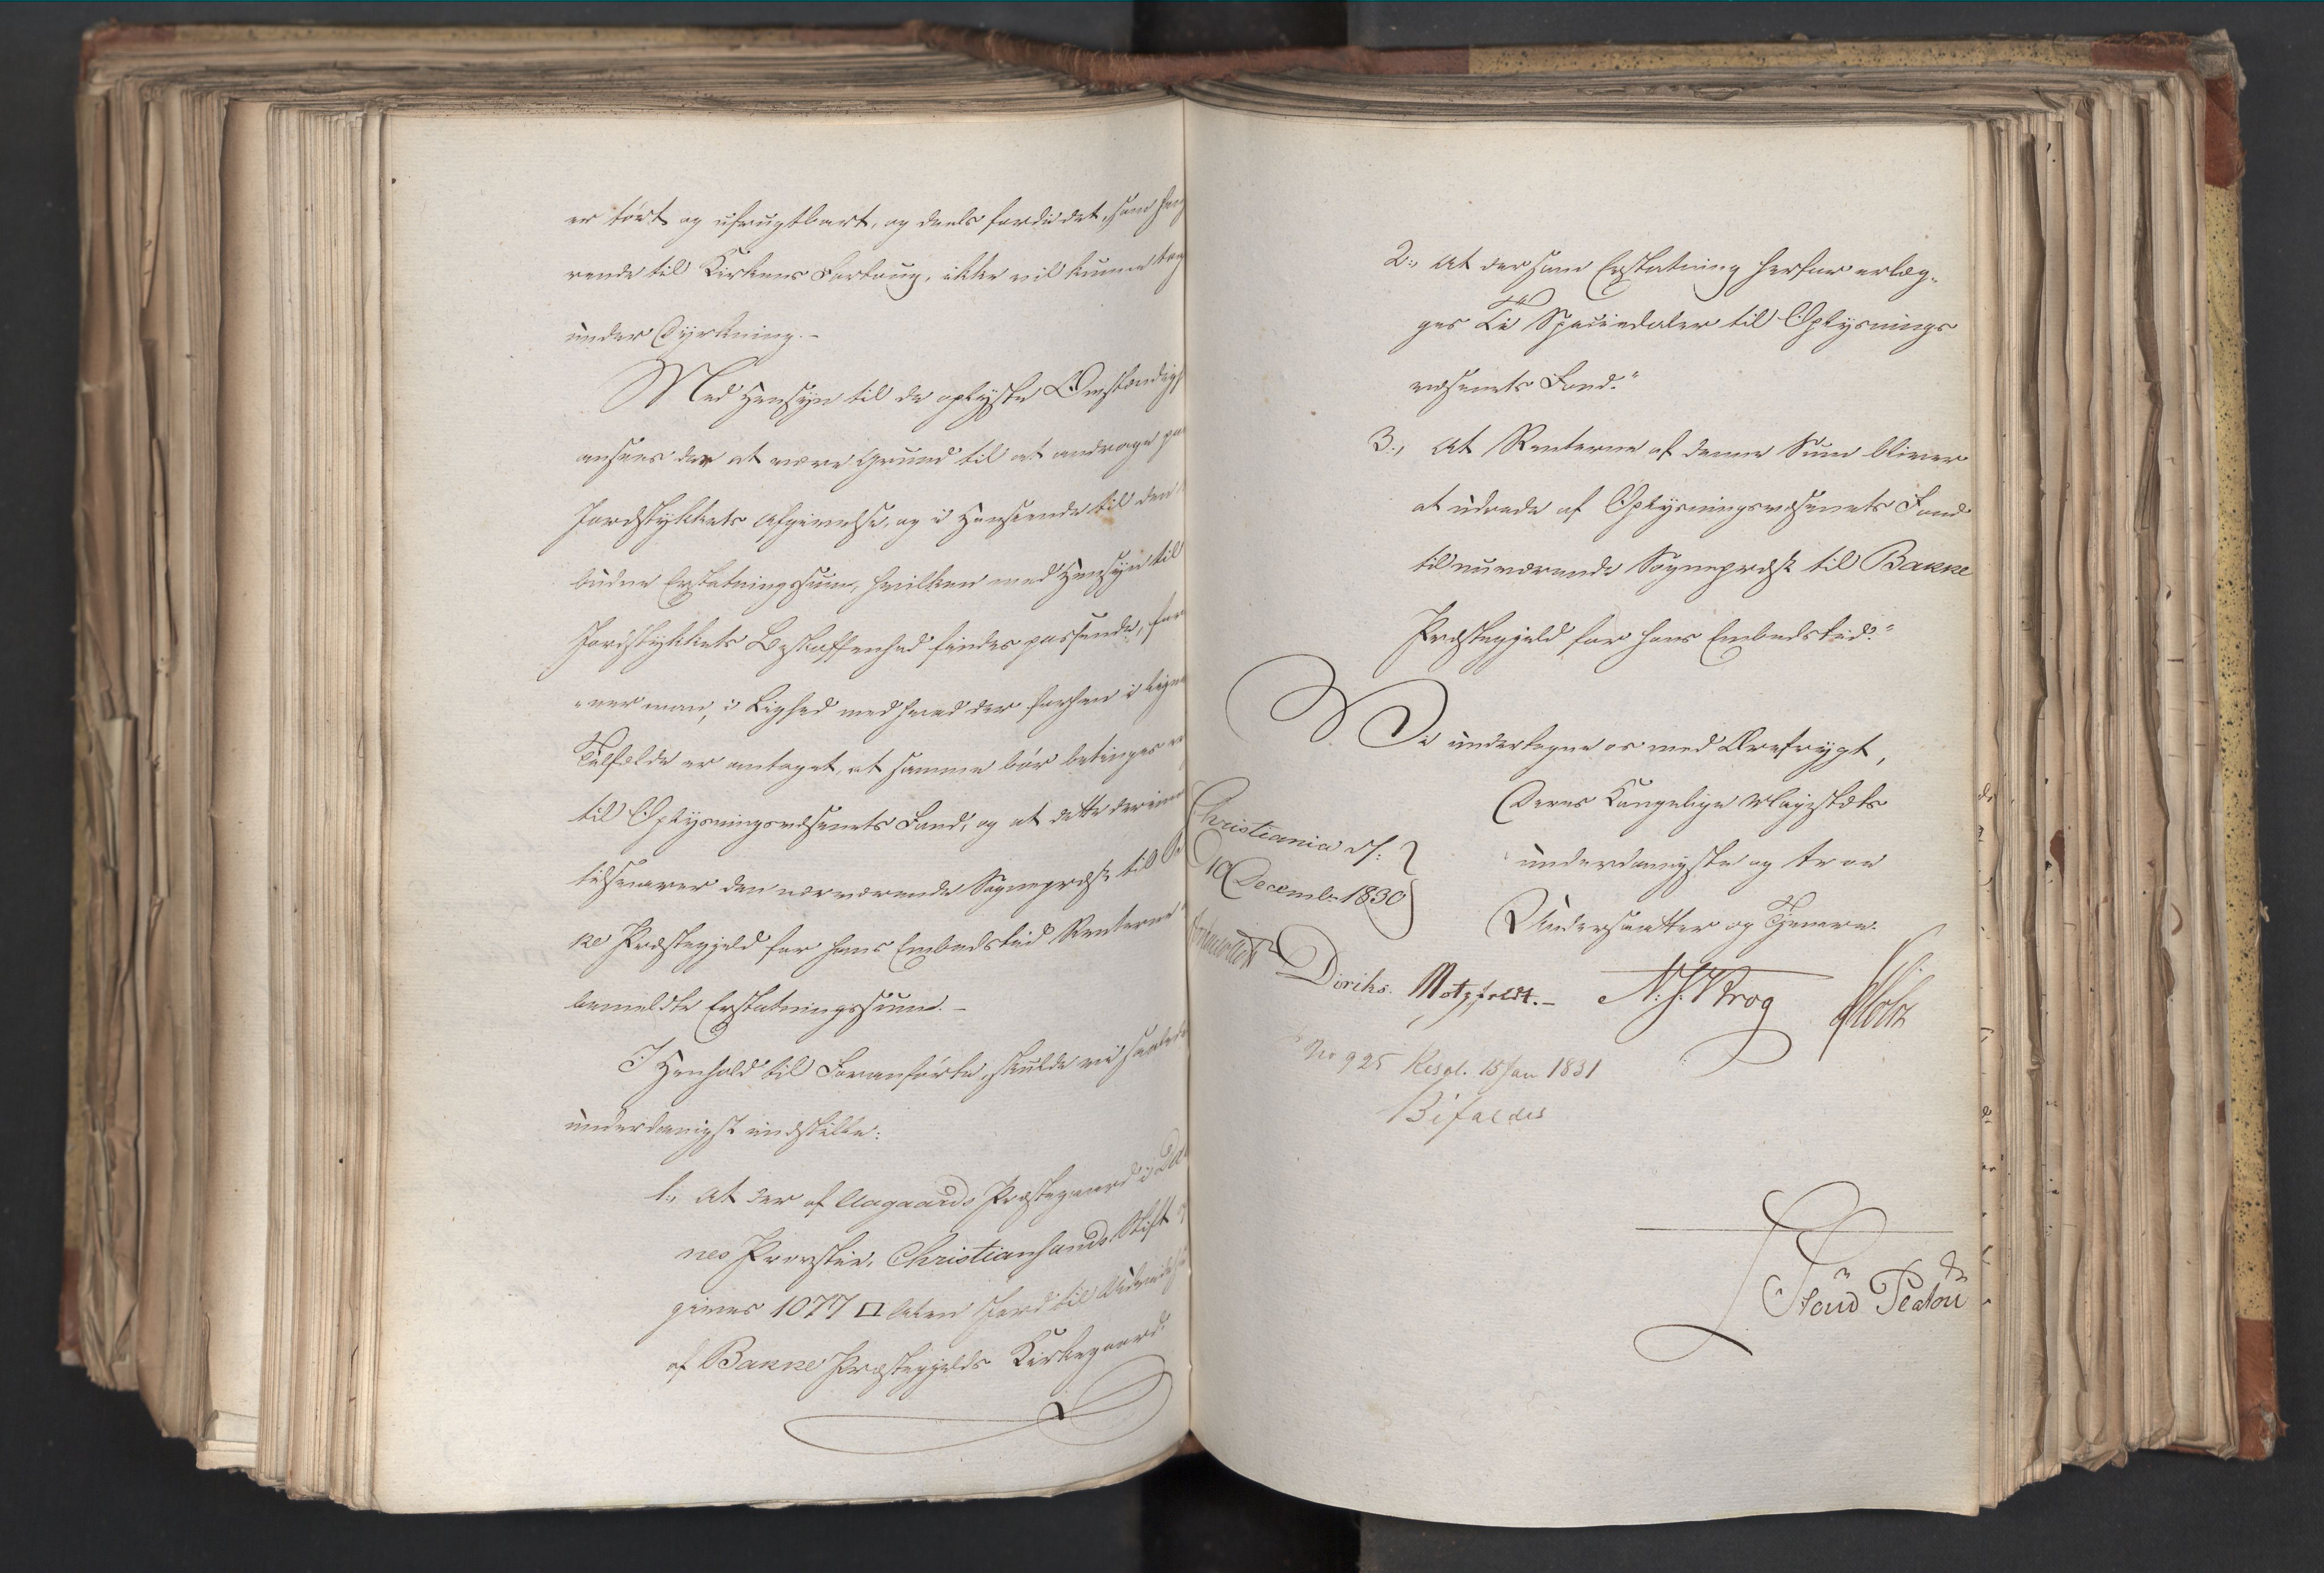 er tört og ufrugtbart, og deels fordi det, som hen
rende til Kirkens Fortoug, ikke vil kunne tag
under Dyrkning.-
Med Hensyn til de oplyste Omstændigh
ansees der at være Grund til at andrage paa
Jordstykkets Afgivelse, og i Henseende til den
budne Erstatningssum, hvilken med Hensyn til
Jordstykkets Beskaffenhed findes passende, for
mener man, i Lighed med hvad der forhen i lign
Tilfælde er antaget, at samme bör betinges
til Oplysningsvæsenets Fond, og at dette derimo
tilsvarer den nærværende Sognepræst til B
ke Præstegjeld for hans Embedstid Renterne
bemeldte Erstatningssum.-
I Henhold til Foranförte, skulde vi saalede
underdanigst indstille:
1., At der af Aagaards Præstegaard i Da
nes Provstie, Christiansands Stift
gives 1077 □ Alen Jord til Udvidelse
af Bakke Præstegjelds Kirkegaard.
2., At der som Erstatning herfor erlæg-
ges Ti Speciedaler til Oplysnings
væsenets Fond."
3., At Renterne af denne Sum bliver
at udrede af Oplysningsvæsenets Fond
til nuværende Sognepræst til Bakke
Præstegjeld for hans Embedstid."
Vi undertegne os med Ærefrygt,
Deres Kongelige Majestæts
underdanigste og troe
Undersaatter og Tjenere.
Christiania d:
10 Decembr 1830
Diriks. Motzfeldt.- N. J. Krog Holst
No 925 Resol. 15 Jan 1831
Bifaldes